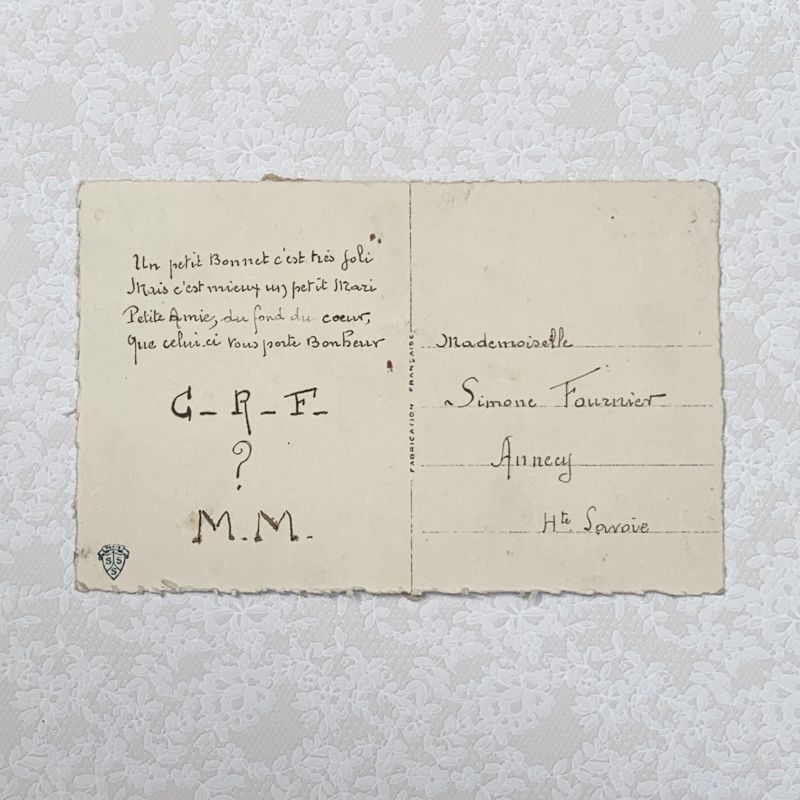 Un petit Bonnet c'est très joli
Mais c'est mieux un petit Mari
Petite Amie, du fond du coeur,
que celui.ci vous porte Bonheur
G - R - F -
?
M.M.
PARIS
S S
S
FABRICATION FRANÇAISE
Mademoiselle
Simone Fournier
Annecy
Hte Savoie